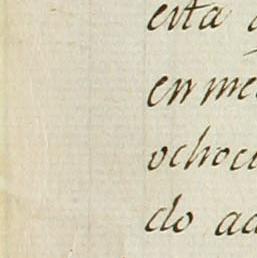 esta
en me
ochoci
do ad